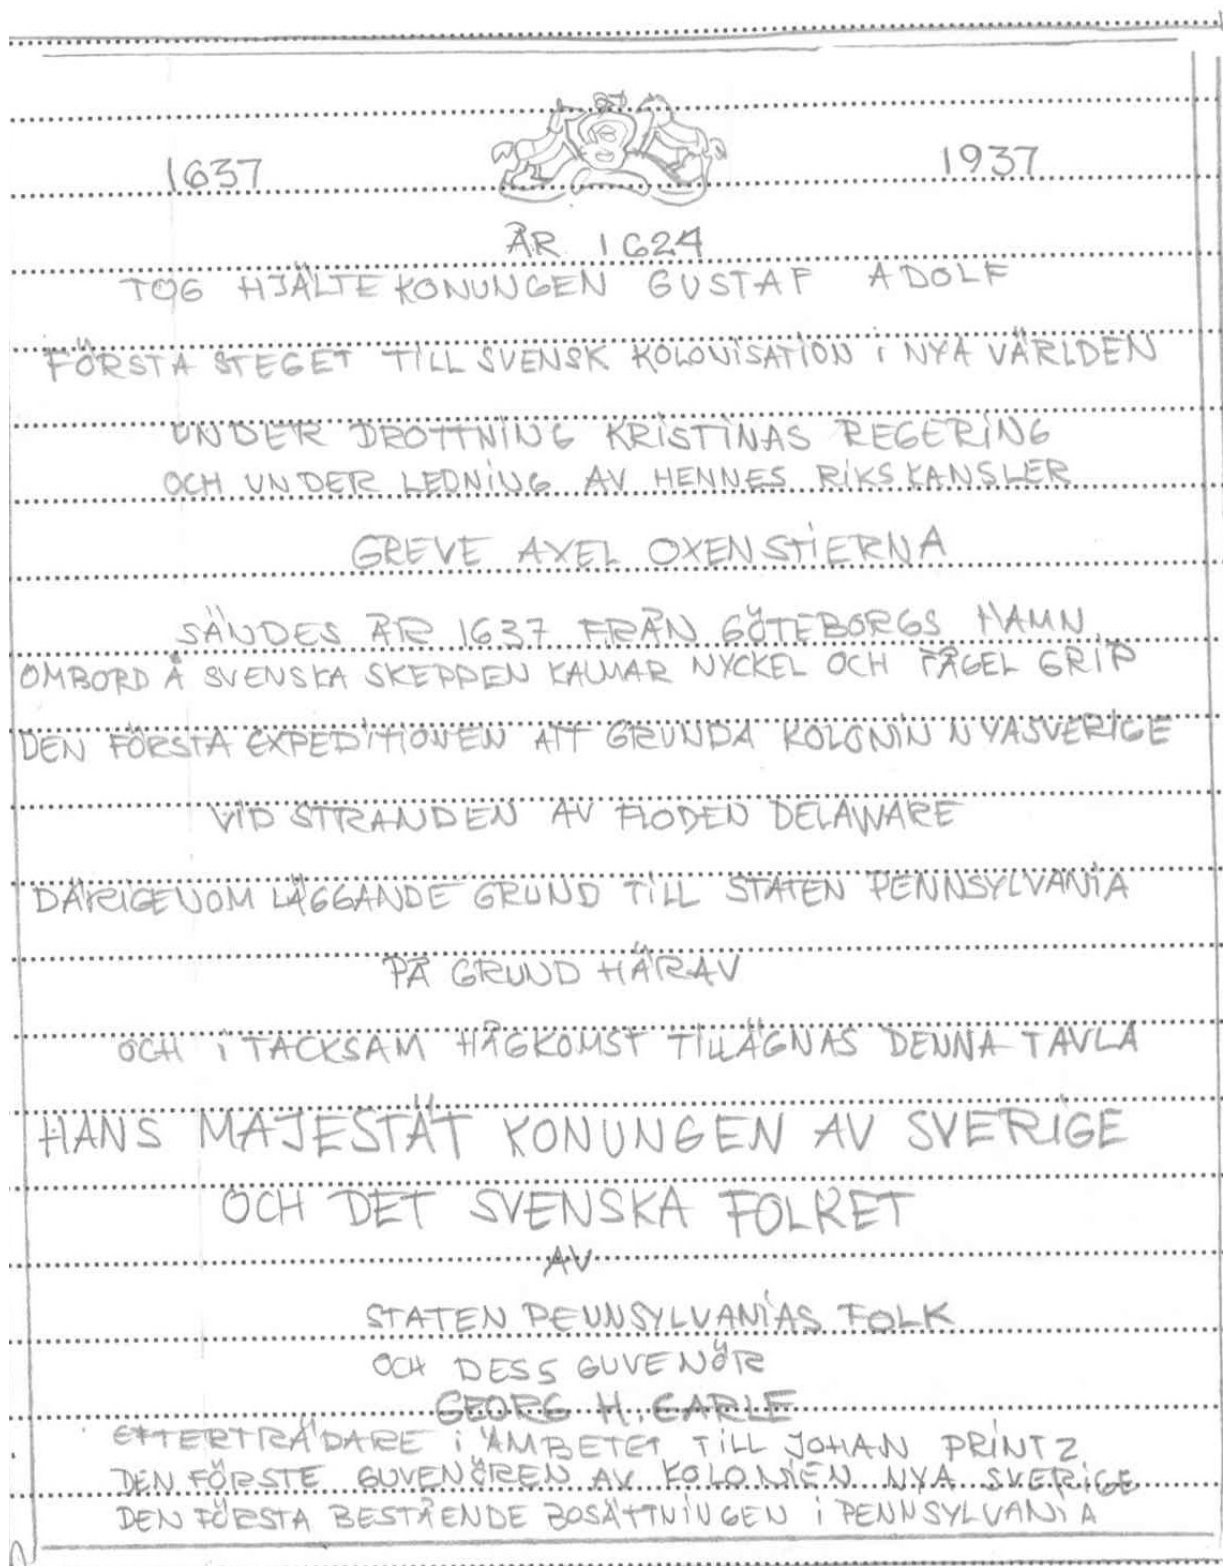 1637 1937
ÅR 1624
TOG HJÄLTEKONUNGEN GUSTAF ADOLF
FÖRSTA STEGET TILL SVENSK KOLONISATION I NYA VÄRLDEN
UNDER DROTTNING KRISTINAS REGERING
OCH UNDER LEDNING AV HENNES RIKSKANSLER
GREVE AXEL OXENSTIERNA
SÄNDES ÅR 1637 FRÅN GÖTEBORGS HAMN
OMBORD Å SVENSKA SKEPPEN KALMAR NYCKEL OCH FÅGEL GRIP
DEN FÖRSTA EXPEDITIONEN ATT GRUNDA KOLONIN NYASVERIGE
VID STRANDEN AV FLODEN DELAWARE
DÄRIGENOM LÄGGANDE GRUND TILL STATEN PENNSYLVANIA
PÅ GRUND HÄRAV
OCH I TACKSAM HÅGKOMST TILLÄGNAS DENNA TAVLA
HANS MAJESTÄT KONUNGEN AV SVERIGE
OCH DET SVENSKA FOLKET
AV
STATEN PENNSYLVANIAS FOLK
OCH DESS GUVENÖR
GEORG H. EARLE
EFTERTRÄDARE I ÄMBETET TILL JOHAN PRINTZ
DEN FÖRSTE GUVENÖREN AV KOLONIEN NYA SVERIGE
DEN FÖRSTA BESTÅENDE BOSÄTTNINGEN I PENNSYLVANIA